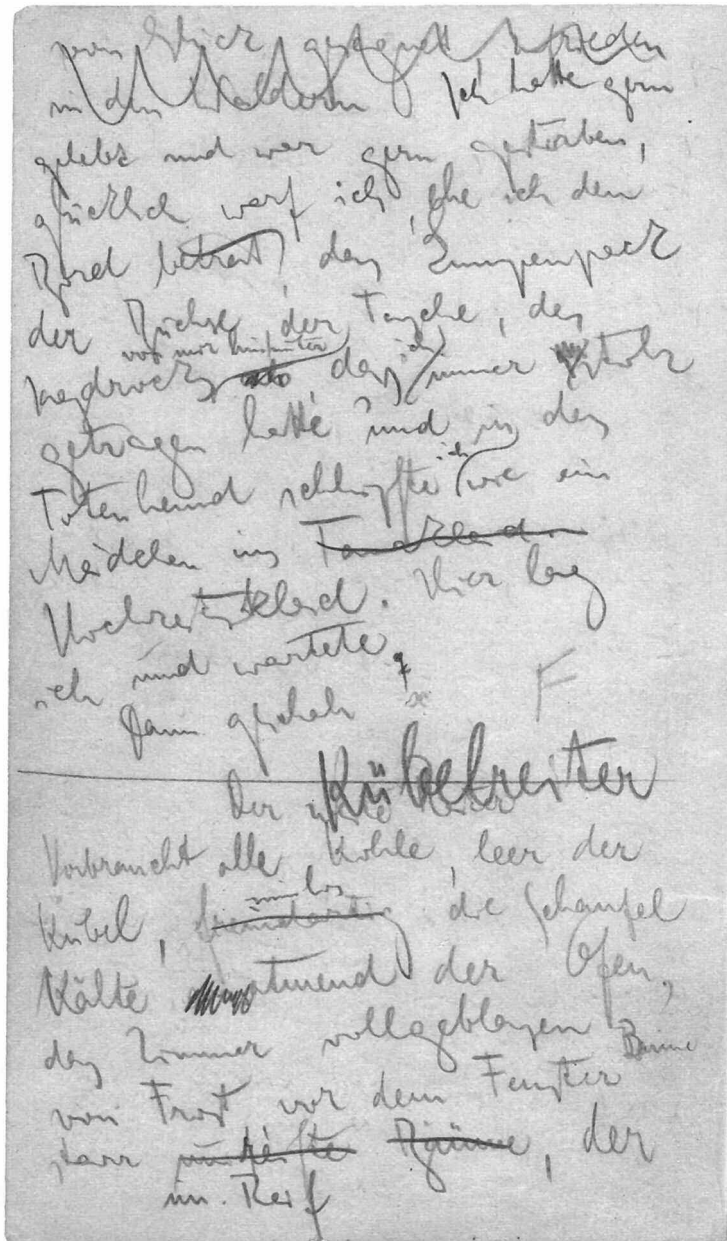 in den Wäldern Ich hatte gern
gelebt und war gern gestorben,
glücklich warf ich, ehe ich den
Bord betrat, das Lumpenpack
der Büchse, der Tasche, des
vor mir hinunter ich
Jagdrock, das immer stolz
getragen hatte und in das
ich
Totenhemd schlüpfte wie ein
Mädchen ins
Hochzeitskleid. Hier lag
ich und wartete.
Dann geschah
F
Kübelreiter
Der
Verbraucht alle Kohle, leer der
sinnlos
Kübel, die Schaufel
Kälte atmend der Ofen,
das Zimmer vollgeblasen
Bäume
von Frost, vor dem Fenster
starr Bäume, der
im Reif